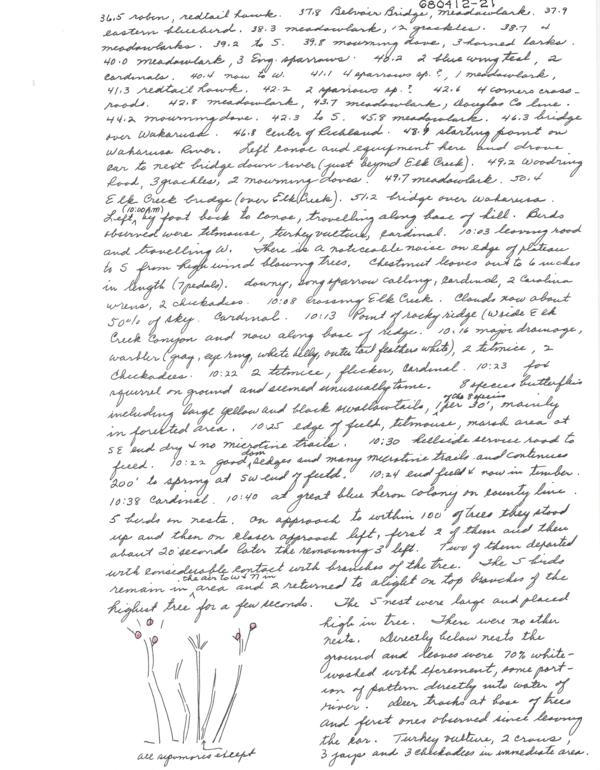 680412-21
36.5 robin, redtail hawk. 37.8 Belvoir Bridge, meadowlark. 37.9
eastern bluebird. 38.3 meadowlark, 12 grackles. 38.7 4
meadowlarks. 39.2 to S. 39.8 mourning dove, 3 horned larks.
40.0 meadowlark, 3 Eng. sparrows. 40.2 2 blue wing teal, 2
cardinals. 40.4 now to W. 41.1 4 sparrows sp.?, 1 meadowlark,
41.3 redtail hawk. 42.2 2 sparrows sp.? 42.6 4 corners cross-
roads. 42.8 meadowlark, 43.7 meadowlark, Douglas Co line.
44.2 mourning dove. 42.3 to S. 45.8 meadowlark. 46.3 bridge
over Wakarusa. 46.8 Center of Richland. 48.9 starting point on
Wakarusa River. Left canoe and equipment here and drove
car to next bridge down river (just beyond Elk Creek). 49.2 Woodring
Road, 3 grackles, 2 mourning doves. 49.7 meadowlark. 50.4
Elk Creek bridge (over Elk Creek). 51.2 bridge over Wakarusa.
(10:00 AM)
Left by foot back to canoe, travelling along base of hill. Birds
observed were titmouse, turkey vulture, cardinal. 10:03 leaving road
and travelling W. There is a noticeable noise on edge of plateau
to S from high wind blowing trees. Chestnut leaves out to 6 inches
in length (7 petals). downy, song sparrow calling, cardinal, 2 Carolina
wrens, 2 chickadees. 10:08 Crossing Elk Creek. Clouds now about
50% of sky. Cardinal. 10:13 Point of rocky ridge (W side Elk
Creek Canyon and now along base of ridge. 10:16 major drainage,
warbler (gray, eye ring, white belly, outer tail feathers white), 2 titmice, 2
chickadees. 10:22 2 titmice, flicker, cardinal. 10:23 fox
squirrel on ground and seemed unusually tame. 8 species butterflies
of the 8 species
including large yellow and black swallowtails, 1 per 30', mainly
in forested area. 10:25 edge of field, titmouse, marsh area at
SE end dry & no microtine trails. 10:30 hillside service road to
feed. 10:22 good sedges and many microtine trails and continues
200' to spring at SW end of field. 10:24 end field & now in timber.
10:38 Cardinal. 10:40 at great blue heron colony on county line.
5 birds on nests. On approach to within 100' of trees they stood
up and then on closer approach left, first 2 of them and then
about 20 seconds later the remaining 3 left. Two of them departed
with considerable contact with branches of the tree. The 5 birds
the air to W & N in
remain in area and 2 returned to alight on top branches of the
highest tree for a few seconds. The 5 nest were large and placed
high in tree. There were no other
nests. Directly below nests the
ground and leaves were 70% white-
washed with excrement, some port-
ion of pattern directly into water of
river. Deer tracks at base of trees
and first ones observed since leaving
the car. Turkey vulture, 2 crows,
3 jays and 3 chickadees in immediate area.
all sycamores except